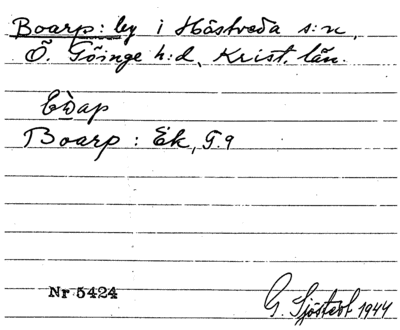 Boarp: by i Hästveda s:n,
Ö. Göinge h:d, Krist. län.
Boarp : Ek, G. 9
Nr 5424
G. Sjöstedt 1944